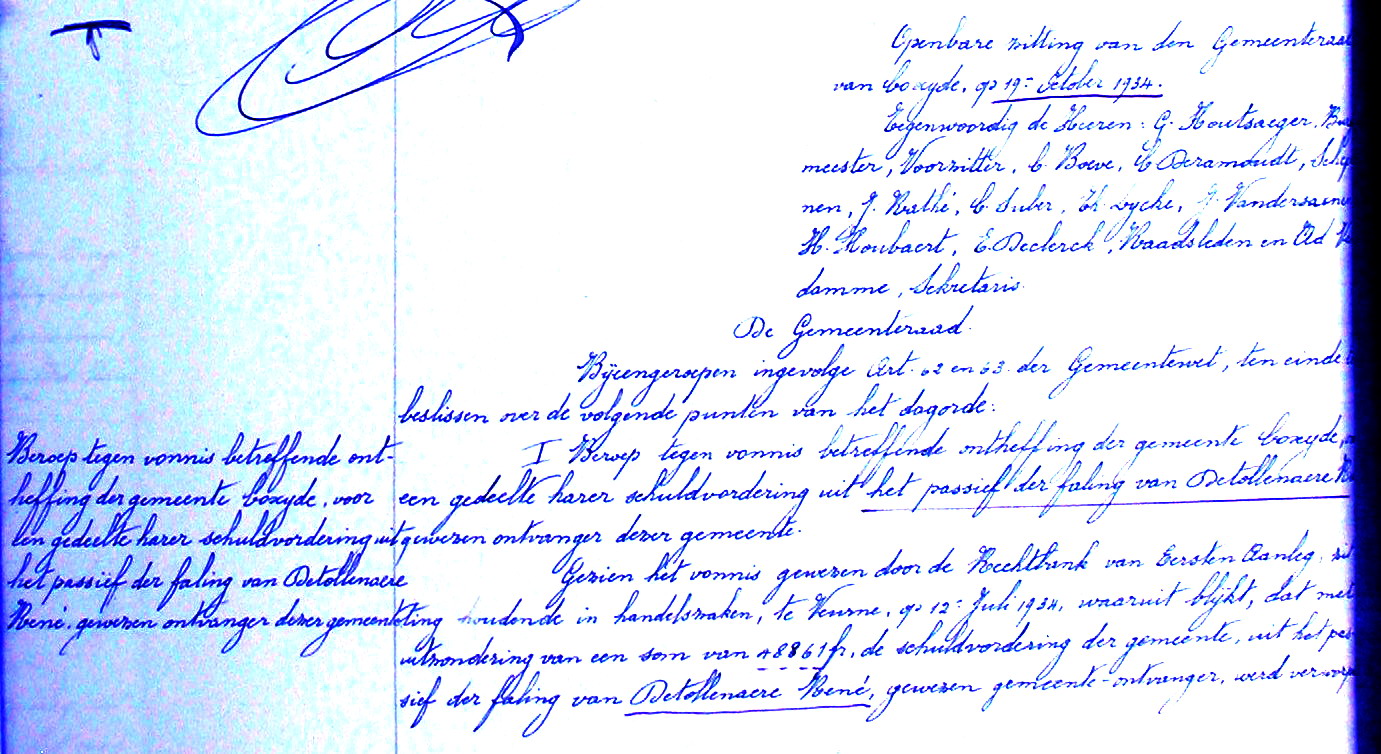 Openbare zitting van den Gemeenteraa
van Coxyde, op 19n October 1934.
Tegenwoordig de Heeren: G. Houtsaeger, Bu
meester, Voorzitter, C. Boeve, C. Deramoudt, Sche
nen, J. Rathé, C. Suber, Th. Lycke, J. Vandersaene
H. Houbaert, E. Declerck, Raadsleden en Ad. V
damme, Sekretaris.
De Gemeenteraad.
Bijeengeroepen ingevolge Art. 62 en 63 der Gemeentewet, ten einde
beslissen over de volgende punten van het dagorde:
Beroep tegen vonnis betreffende ont-
heffing der gemeente Coxyde, voor
een gedeelte harer schuldvordering uit
het passief der faling van Detollenaere
René, gewezen ontvanger dezer gemeente
I Beroep tegen vonnis betreffende ontheffing der gemeente Coxyde,
een gedeelte harer schuldvordering uit het passief der faling van Detollenaere R
gewezen ontvanger dezer gemeente.
Gezien het vonnis gewezen door de Rechtbank van Eersten Aanleg, zit
ting houdende in handelszaken, te Veurne, op 12n Juli 1934, waaruit blijkt, dat met
uitzondering van een som van 48861 fr, de schuldvordering der gemeente, uit het pas
sief der faling van Detollenaere René, gewezen gemeente-ontvanger, werd verworp